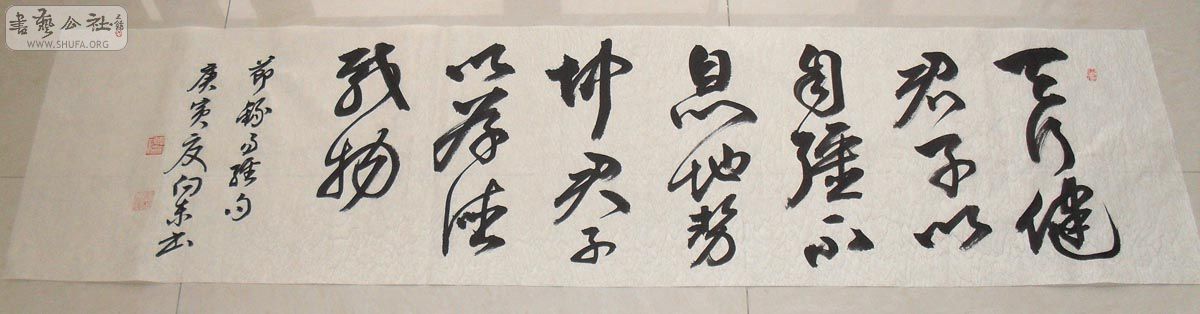 天行健
君子以
自强不
息地势
坤君子
以厚德
载物
节录易经句
庚寅夏向东书
書藝公社
WWW.SHUFA.ORG